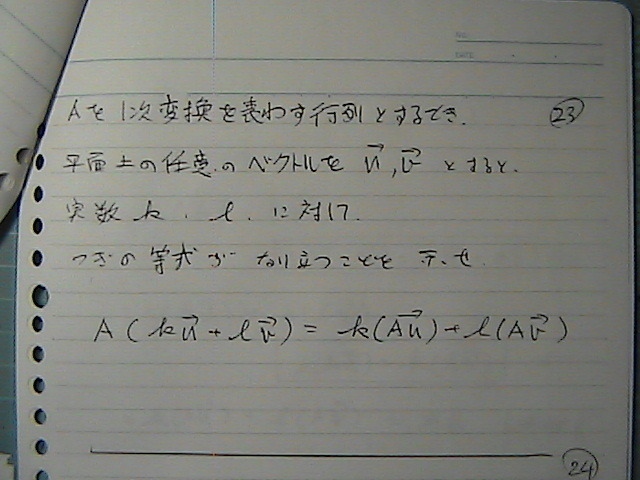 NO.
DATE
Aを1次変換を表わす行列とするとき. ㉓
平面上の任意のベクトルを u⃗, v⃗ とすると.
実数 k, l, に対して.
つぎの等式が なり立つことを 示せ.
A(ku⃗ + lv⃗) = k(Au⃗) + l(Av⃗)
㉔